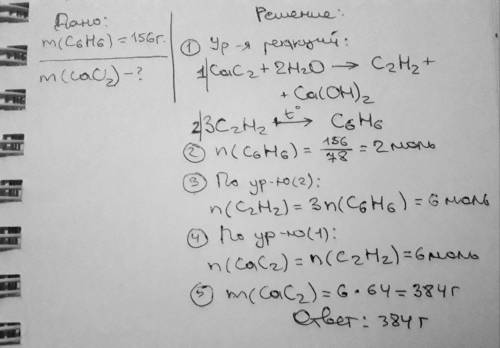 Дано:
m(C6H6) = 156г.
m(CaC2) - ?
Решение:
① Ур-я реакций:
1| CaC2 + 2H2O → C2H2 +
+ Ca(OH)2
2| 3C2H2 ⟷ t° C6H6
② n(C6H6) = 156/78 = 2 моль
③ По ур-ю(2):
n(C2H2) = 3n(C6H6) = 6 моль
④ По ур-ю(1):
n(CaC2) = n(C2H2) = 6 моль
⑤ m(CaC2) = 6 · 64 = 384 г
Ответ: 384 г